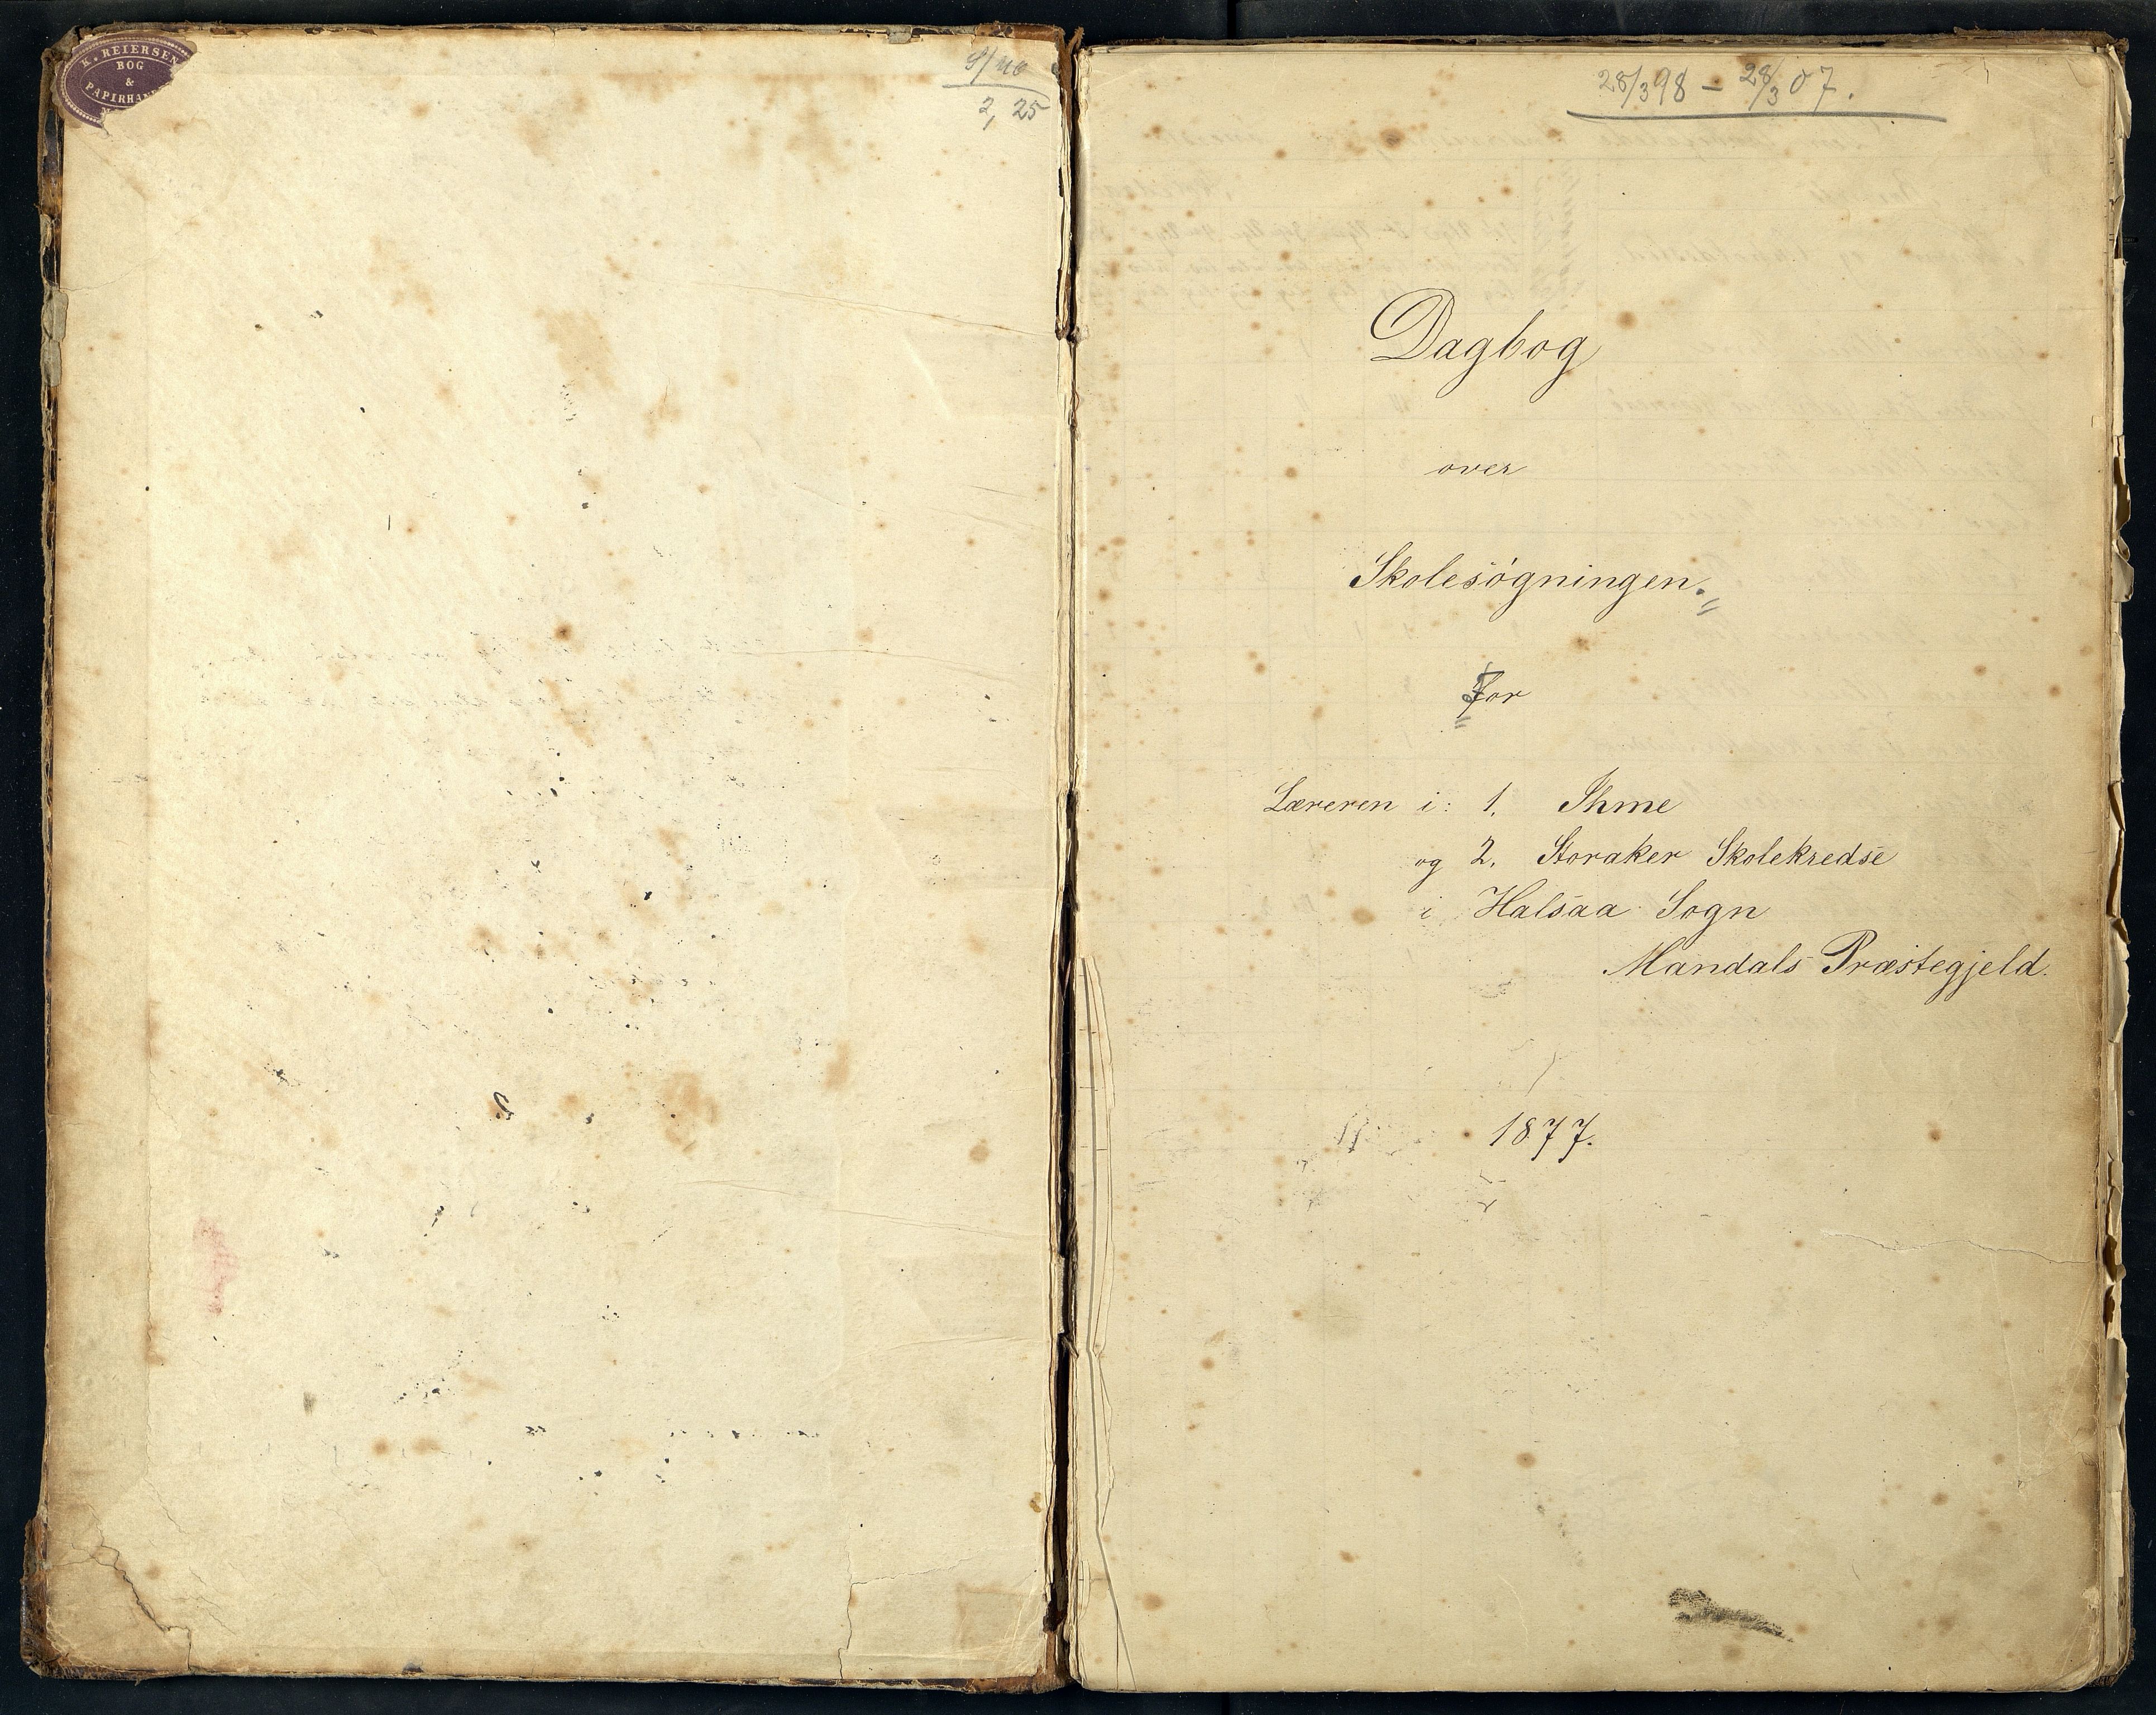 K. REIERSEN
BOG
&
PAPIRHAN
2,25
28/3 98 - 28/3 07.
Dagbog
over
Skolesøgningen.
for
Læreren i: 1. Ihme
og 2. Storaker Skolekredse
i Halsaa Sogn
Mandals Præstegjeld.
1877.